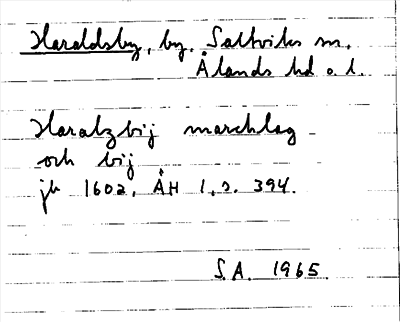 Haraldsby, by. Saltviks sn.
Ålands hd o. l.
Haralzbij marchlag
och bij
jb 1602, ÅH 1, s. 394.
S.A. 1965.